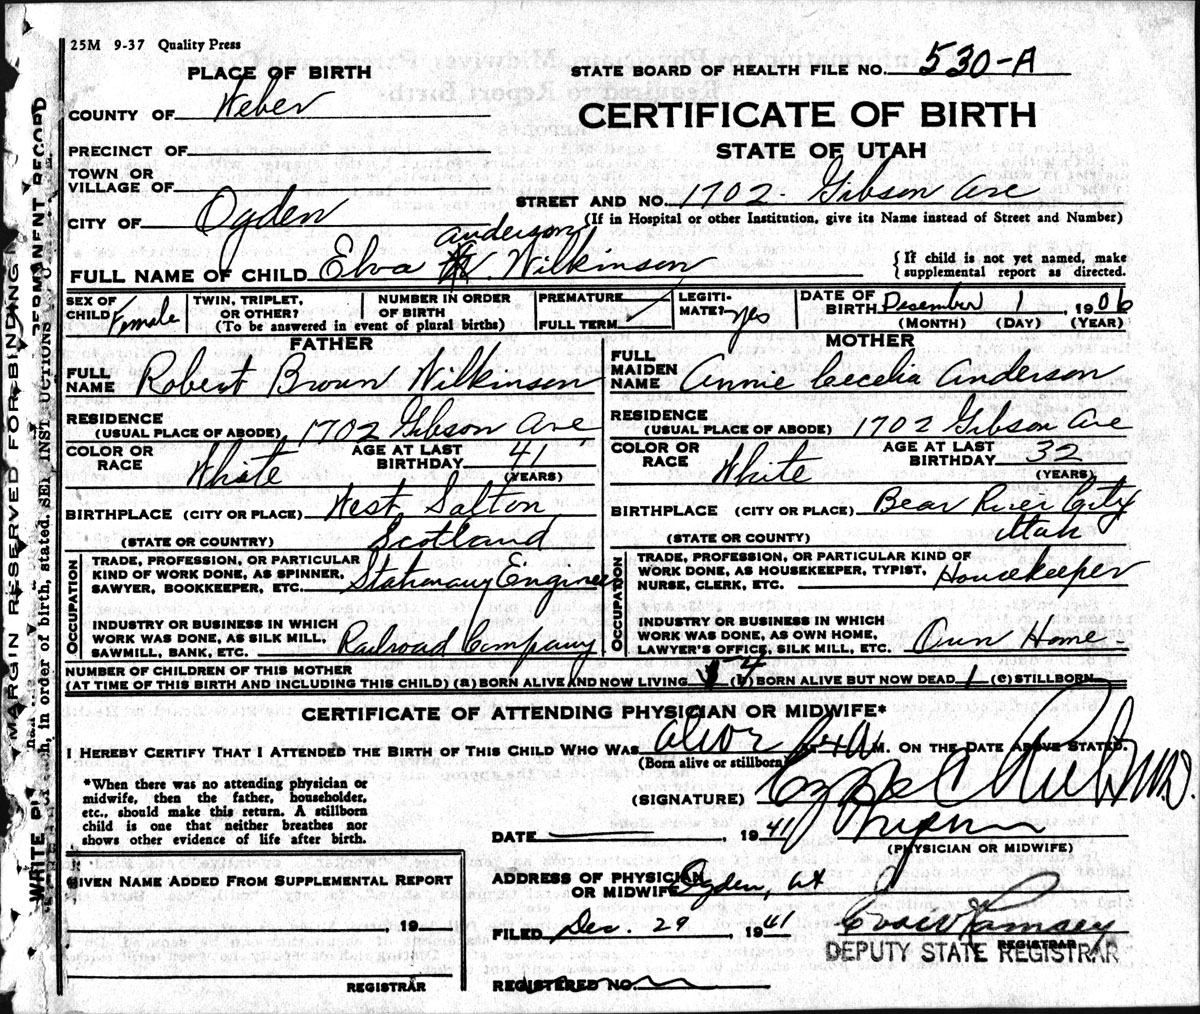 25M 9-37 Quality Press
PLACE OF BIRTH
STATE BOARD OF HEALTH FILE NO. 530-A
COUNTY OF Weber
CERTIFICATE OF BIRTH
PRECINCT OF
STATE OF UTAH
TOWN OR
VILLAGE OF
STREET AND NO. 1702 Gibson Ave
CITY OF Ogden
(If in Hospital or other Institution, give its Name instead of Street and Number)
Anderson
FULL NAME OF CHILD Elva Wilkinson
{If child is not yet named, make
supplemental report as directed.
SEX OF
CHILD Female
TWIN, TRIPLET,
OR OTHER?
NUMBER IN ORDER
OF BIRTH
(To be answered in event of plural births)
PREMATURE
FULL TERM
LEGITI-
MATE? yes
DATE OF
BIRTH Desember 1, 1906
(MONTH) (DAY) (YEAR)
FATHER
FULL
NAME Robert Brown Wilkinson
RESIDENCE
(USUAL PLACE OF ABODE) 1702 Gibson Ave
COLOR OR
RACE White
AGE AT LAST
BIRTHDAY 41
(YEARS)
BIRTHPLACE (CITY OR PLACE) West Salton
(STATE OR COUNTRY) Scotland
OCCUPATION
TRADE, PROFESSION, OR PARTICULAR
KIND OF WORK DONE, AS SPINNER,
SAWYER, BOOKKEEPER, ETC. Stationary Engineer
INDUSTRY OR BUSINESS IN WHICH
WORK WAS DONE, AS SILK MILL,
SAWMILL, BANK, ETC. Railroad Company
MOTHER
FULL
MAIDEN
NAME Annie Cecelia Anderson
RESIDENCE
(USUAL PLACE OF ABODE) 1702 Gibson Ave
COLOR OR
RACE White
AGE AT LAST
BIRTHDAY 32
(YEARS)
BIRTHPLACE (CITY OR PLACE) Bear River City
(STATE OR COUNTY) Utah
OCCUPATION
TRADE, PROFESSION, OR PARTICULAR KIND OF
WORK DONE, AS HOUSEKEEPER, TYPIST,
NURSE, CLERK, ETC. Housekeeper
INDUSTRY OR BUSINESS IN WHICH
WORK WAS DONE, AS OWN HOME,
LAWYER'S OFFICE, SILK MILL, ETC. Own Home
NUMBER OF CHILDREN OF THIS MOTHER
(AT TIME OF THIS BIRTH AND INCLUDING THIS CHILD) (a) BORN ALIVE AND NOW LIVING 4 (b) BORN ALIVE BUT NOW DEAD 1 (c) STILLBORN
CERTIFICATE OF ATTENDING PHYSICIAN OR MIDWIFE*
I HEREBY CERTIFY THAT I ATTENDED THE BIRTH OF THIS CHILD WHO WAS alive AT 4 A M. ON THE DATE ABOVE STATED.
(Born alive or stillborn)
*When there was no attending physician or
midwife, then the father, householder,
etc., should make this return. A stillborn
child is one that neither breathes nor
shows other evidence of life after birth.
(SIGNATURE) M.D.
DATE 1941
(PHYSICIAN OR MIDWIFE)
GIVEN NAME ADDED FROM SUPPLEMENTAL REPORT
, 19
REGISTRAR
ADDRESS OF PHYSICIAN
OR MIDWIFE Ogden, Ut
FILED Dec. 29 1941
Ramsey
DEPUTY STATE REGISTRAR
REGISTRAR
REGISTERED NO.
MARGIN RESERVED FOR BINDING
PERMANENT RECORD
in order of birth, stated. SEE INSTRUCTIONS
WRITE